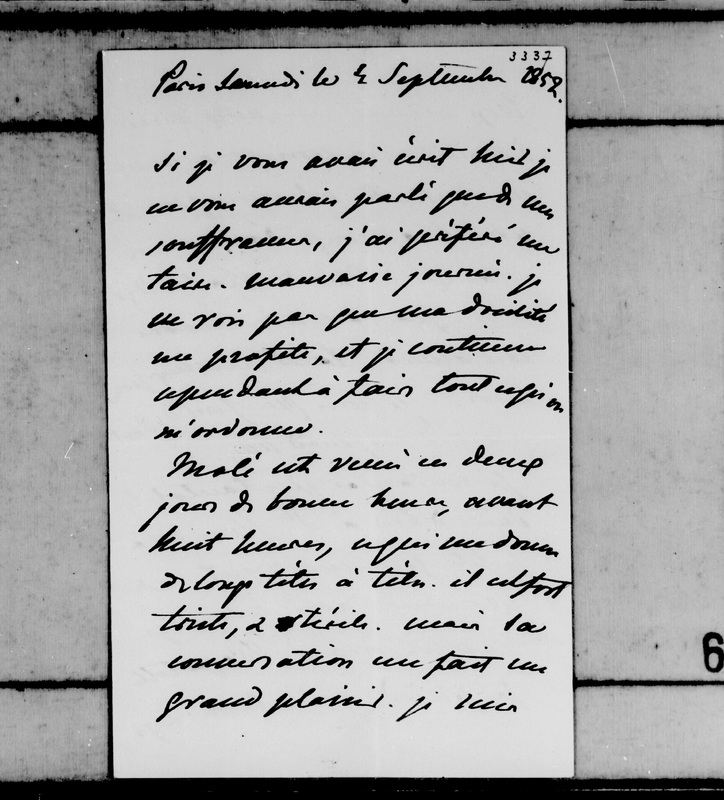 3337
Paris Samedi le 4 Septembre 1852.
si je vous avais écrit hier je
ne vous aurais parlé que de mes
souffrances, j'ai préféré me
taire. mauvaise journée. je
ne vois pas que ma docilité
me profite, et je continue
cependant à faire tout ce qu'on
m'ordonne.
Molé est venu ces deux
jours de bonne heure, avant
huit heures, ce qui me donne
de longs têtes à têtes. il est fort
triste, & stérile. mais sa
conversation me fait un
grand plaisir. je
6